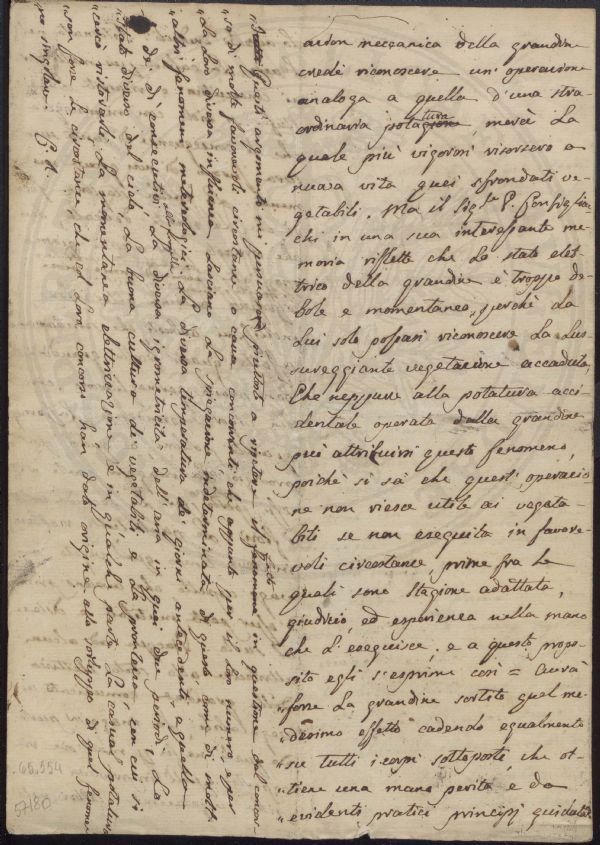 azion meccanica della grandine
credè riconoscere un'operazione
analoga a quella d'una stra-
ordinaria potagione tura mercè la
quale più vigorosi risorsero a
nuova vita quei sfrondati ve-
getabili. Ma il Sig.re P. Configlia-
chi in una sua interessante me-
moria riflette che lo stato elet-
trico della grandine è troppo de-
bole e momentaneo, perchè da
lui solo possasi riconoscere la lus-
sureggiante vegetazione accaduta,
Che neppure alla potatura acci-
dentale operata dalla grandine
può attribuirsi questo fenomeno,
poichè si sà che quest'operazio
ne non riesce utile ai vegeta-
bili se non eseguita in favore-
voli circostanze, prime fra le
quali sono stagione adattata,
giudizio, ed esperienza nella mano
che l'eseguisce. e a questo propo-
sito egli s'esprime così = Avrà
forse la grandine sortito quel me-
"desimo effetto cadendo egualmente
"su tutti i corpi sottoposti, che ot-
"tiene una mano perita, e da
"evidenti pratici principj guidata?
"Questi argomenti mi persuadono piuttosto a ripetere il fenomeno in questione dal concor-
"so di molte favorevoli circostanze o cause concomitanti, che appunto per il loro numero, e per
"la loro diversa influenza lasciano la spiegazione indeterminata di questo come di molt'
"altri fenomeni meteorologici. La diversa temperatura de' giorni antecedenti a quello
de' dì consecutivi, la diversa igrometricità dell'aria in quei due periodi, lo
"stato diverso del cielo, la buona cultura de' vegetabili e la prontezza, con cui si
"cercò ristorarli, la momentanea elettrizzazione e in qualche parte la casual potatura
"son forse le circostanze, che col loro concorso han dato origine allo sviluppo di quel fenome
no singolare.
65.554
57180